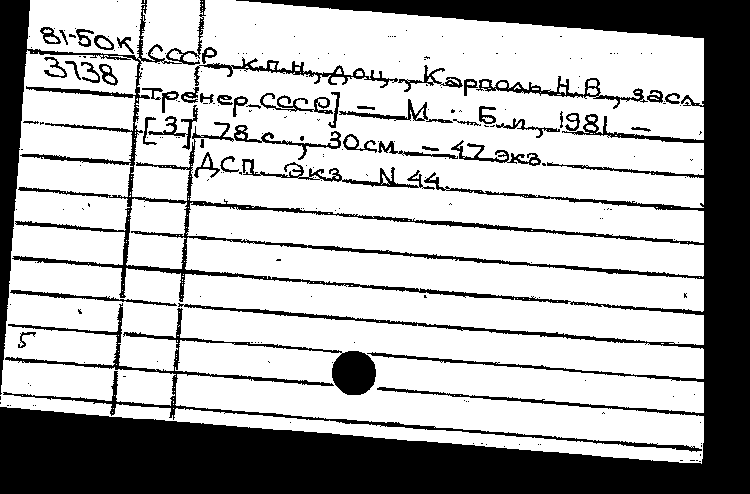 81-50К СССР, к.п.н, доц., Карполь Н.В., засл.
3738 тренер СССР] – М.: Б.и, 1981 –
[3], 78 с.; 30см. – 47 экз.
ДСП. Экз. N 44.
5